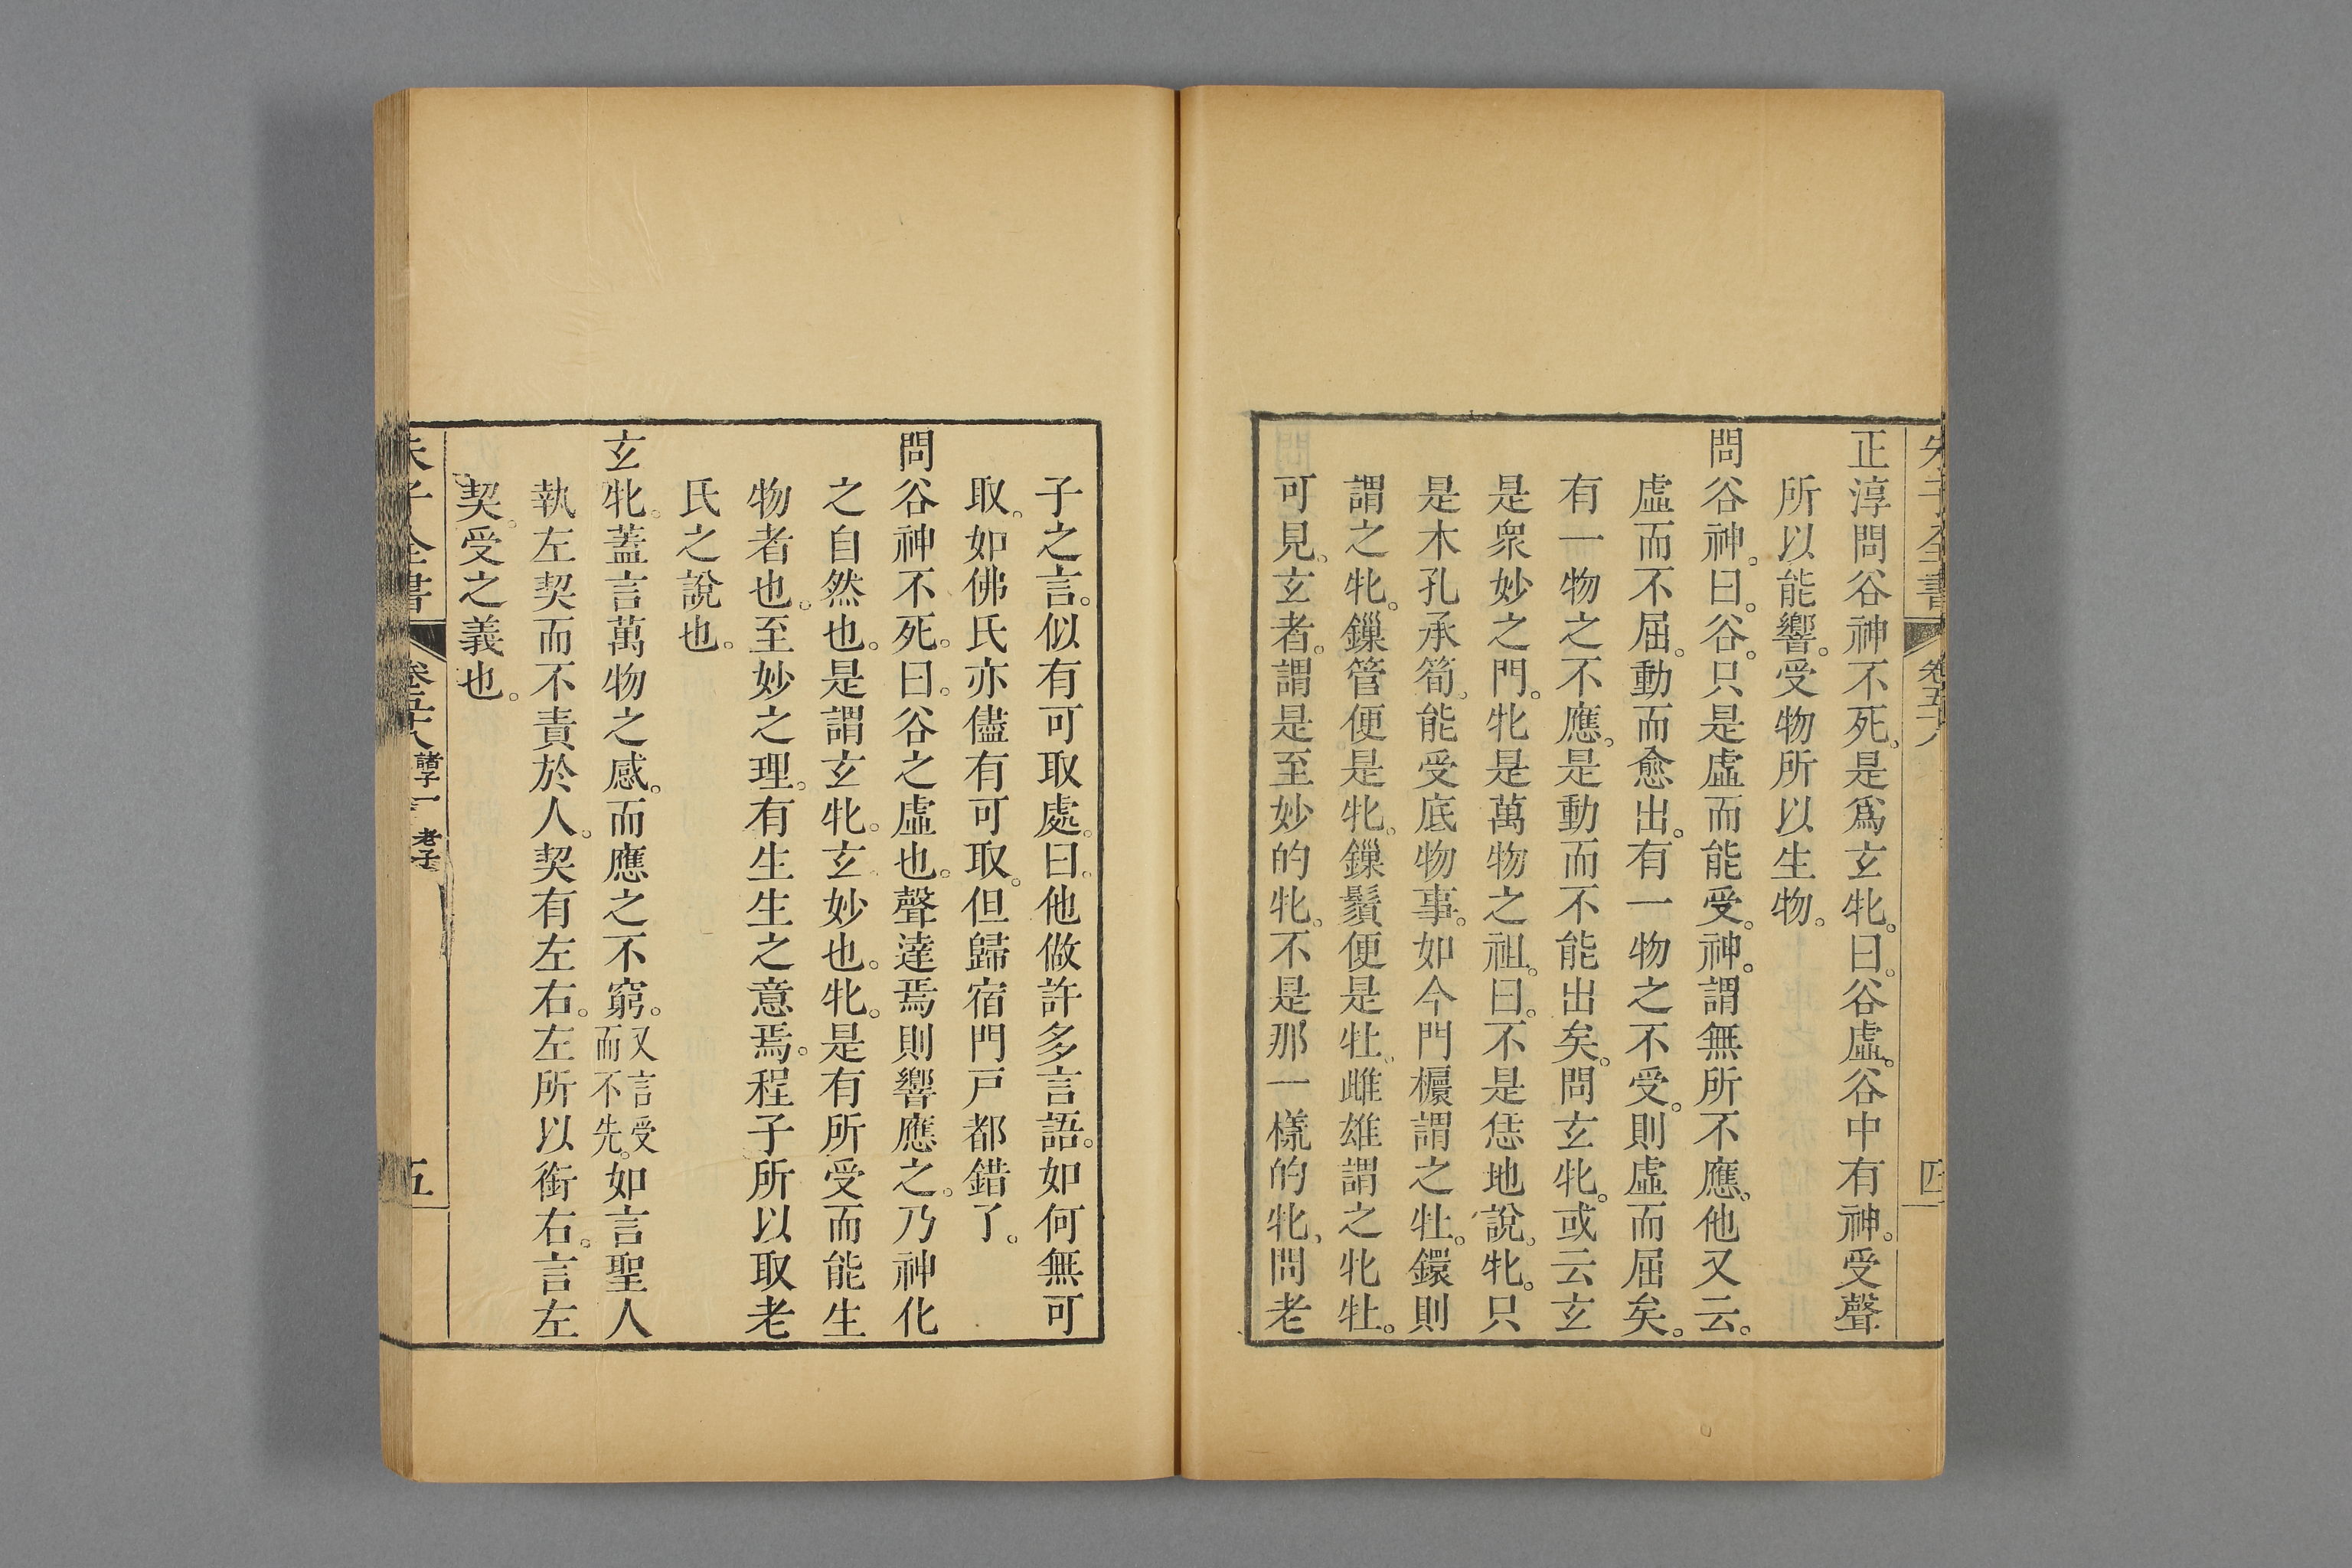 朱子全書 卷五十八 四
正淳問谷神不死、是爲玄牝。曰。谷虛。谷中有神。受聲
所以能響。受物所以生物。
問谷神。曰。谷。只是虛而能受。神。謂無所不應。他又云。
虛而不屈。動而愈出。有一物之不受。則虛而屈矣。
有一物之不應。是動而不能出矣。問玄牝。或云玄
是衆妙之門。牝是萬物之祖。曰。不是恁地說。牝。只
是木孔承筍、能受底物事。如今門㯠謂之牡。鐶則
謂之牝。鏁管便是牝。鏁鬚便是牡。雌雄謂之牝牡。
可見。玄者。謂是至妙的牝。不是那一樣的牝、問老
子之言。似有可取處。曰。他做許多言語。如何無可
取。如佛氏亦儘有可取。但歸宿門戸都錯了。
問谷神不死。曰。谷之虛也。聲達焉則響應之。乃神化
之自然也。是謂玄牝。玄妙也。牝。是有所受而能生
物者也。至妙之理。有生生之意焉。程子所以取老
氏之說也。
玄牝。蓋言萬物之感。而應之不窮。又言受而不先。如言聖人
執左契而不責於人。契有左右。左所以銜右。言左
契。受之義也。
朱子全書 卷五十八 諸子一 老子 五